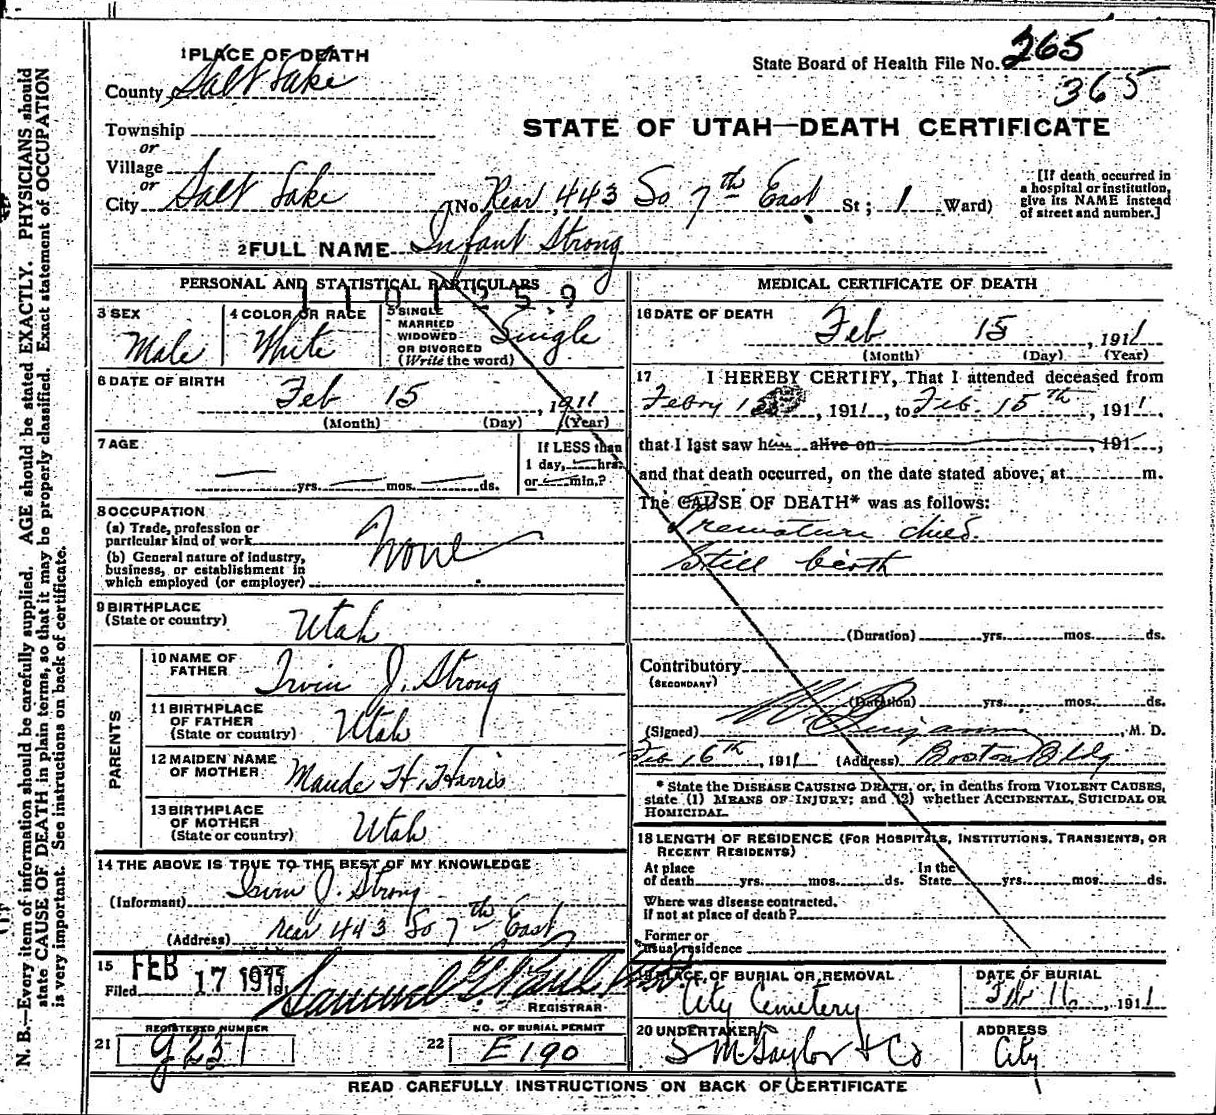 1 PLACE OF DEATH
County Salt Lake
State Board of Health File No. 265
365
Township
or
Village
or
STATE OF UTAH—DEATH CERTIFICATE
City Salt Lake (No. Rear 443 So 7th East St; 1 Ward)
[If death occurred in a hospital or institution, give its NAME instead of street and number.]
2 FULL NAME Infant Strong
PERSONAL AND STATISTICAL PARTICULARS
1101259
3 SEX
Male
4 COLOR OR RACE
White
5 SINGLE
MARRIED
WIDOWED
OR DIVORCED
(Write the word)
Single
6 DATE OF BIRTH
Feb 15, 1911
(Month) (Day) (Year)
7 AGE
yrs. mos. ds.
If LESS than
1 day, hrs.
or min.?
8 OCCUPATION
(a) Trade, profession or
particular kind of work
None
(b) General nature of industry,
business, or establishment in
which employed (or employer)
9 BIRTHPLACE
(State or country)
Utah
PARENTS
10 NAME OF
FATHER
Irvin J. Strong
11 BIRTHPLACE
OF FATHER
(State or country)
Utah
12 MAIDEN NAME
OF MOTHER
Maude H. Harris
13 BIRTHPLACE
OF MOTHER
(State or country)
Utah
14 THE ABOVE IS TRUE TO THE BEST OF MY KNOWLEDGE
(Informant) Irvin J. Strong
(Address) rear 443 So 7th East
15
Filed FEB 17 1911
REGISTRAR
REGISTERED NUMBER
21
NO. OF BURIAL PERMIT
22 E190
MEDICAL CERTIFICATE OF DEATH
16 DATE OF DEATH
Feb 15, 1911
(Month) (Day) (Year)
17 I HEREBY CERTIFY, That I attended deceased from
Febry, 1911, to Feb. 15th, 1911,
that I last saw him alive on 191,
and that death occurred, on the date stated above, at m.
The CAUSE OF DEATH* was as follows:
Premature
Still birth
(Duration) yrs. mos. ds.
Contributory
(SECONDARY)
(Duration) yrs. mos. ds.
(Signed) M. D.
Feb 16th, 1911 (Address) Boston Bldg
* State the DISEASE CAUSING DEATH, or, in deaths from VIOLENT CAUSES,
state (1) MEANS OF INJURY; and (2) whether ACCIDENTAL, SUICIDAL OR
HOMICIDAL.
18 LENGTH OF RESIDENCE (FOR HOSPITALS, INSTITUTIONS, TRANSIENTS, OR
RECENT RESIDENTS)
At place
of death yrs. mos. ds.
In the
State yrs. mos. ds.
Where was disease contracted.
If not at place of death?
Former or
usual residence
19 PLACE OF BURIAL OR REMOVAL
City Cemetery
DATE OF BURIAL
Feb 16, 1911
20 UNDERTAKER
S M Taylor & Co
ADDRESS
City
READ CAREFULLY INSTRUCTIONS ON BACK OF CERTIFICATE
N. B.—Every item of information should be carefully supplied. AGE should be stated EXACTLY. PHYSICIANS should
state CAUSE OF DEATH in plain terms, so that it may be properly classified. Exact statement of OCCUPATION
is very important. See instructions on back of certificate.